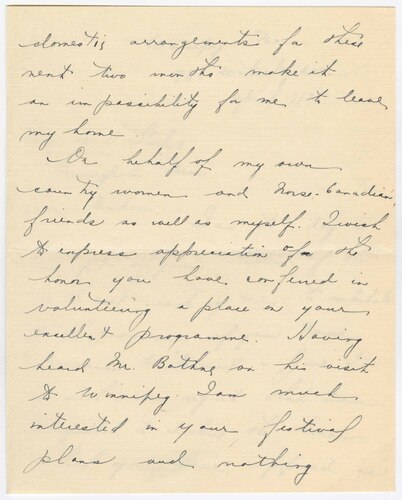 domestic arrangements for these
next two months make it
an impossibility for me to leave
my home.
On behalf of my own
country women and Norse-Canadian
friends as well as myself. I wish
to express appreciation of the
honor you have conferred in
volunteering a place on your
excellent programme. Having
heard Mr. on his visit
to Winnipeg I am much
interested in your festival
plans and nothing